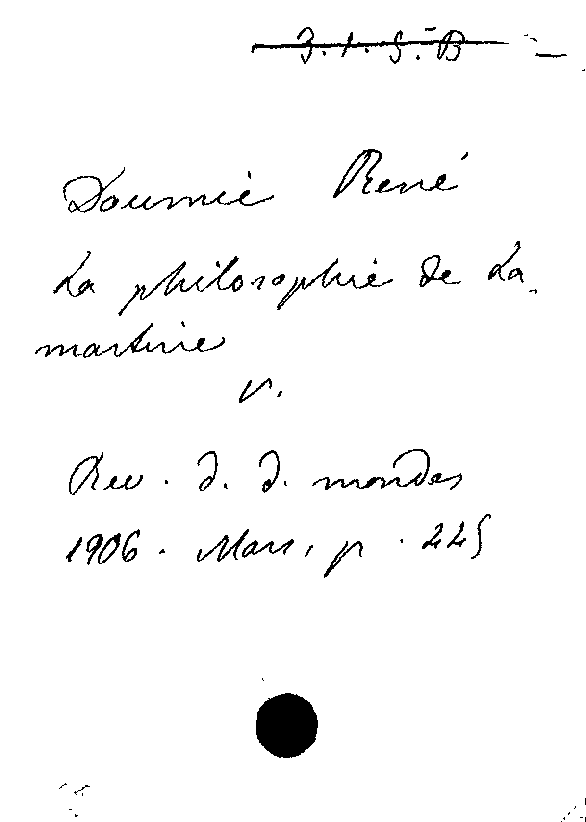 3.1.5.B
Doumic René
La philosophie de La-
martine
v.
Rev. d. d. mondes
1906. Mars, p. 225